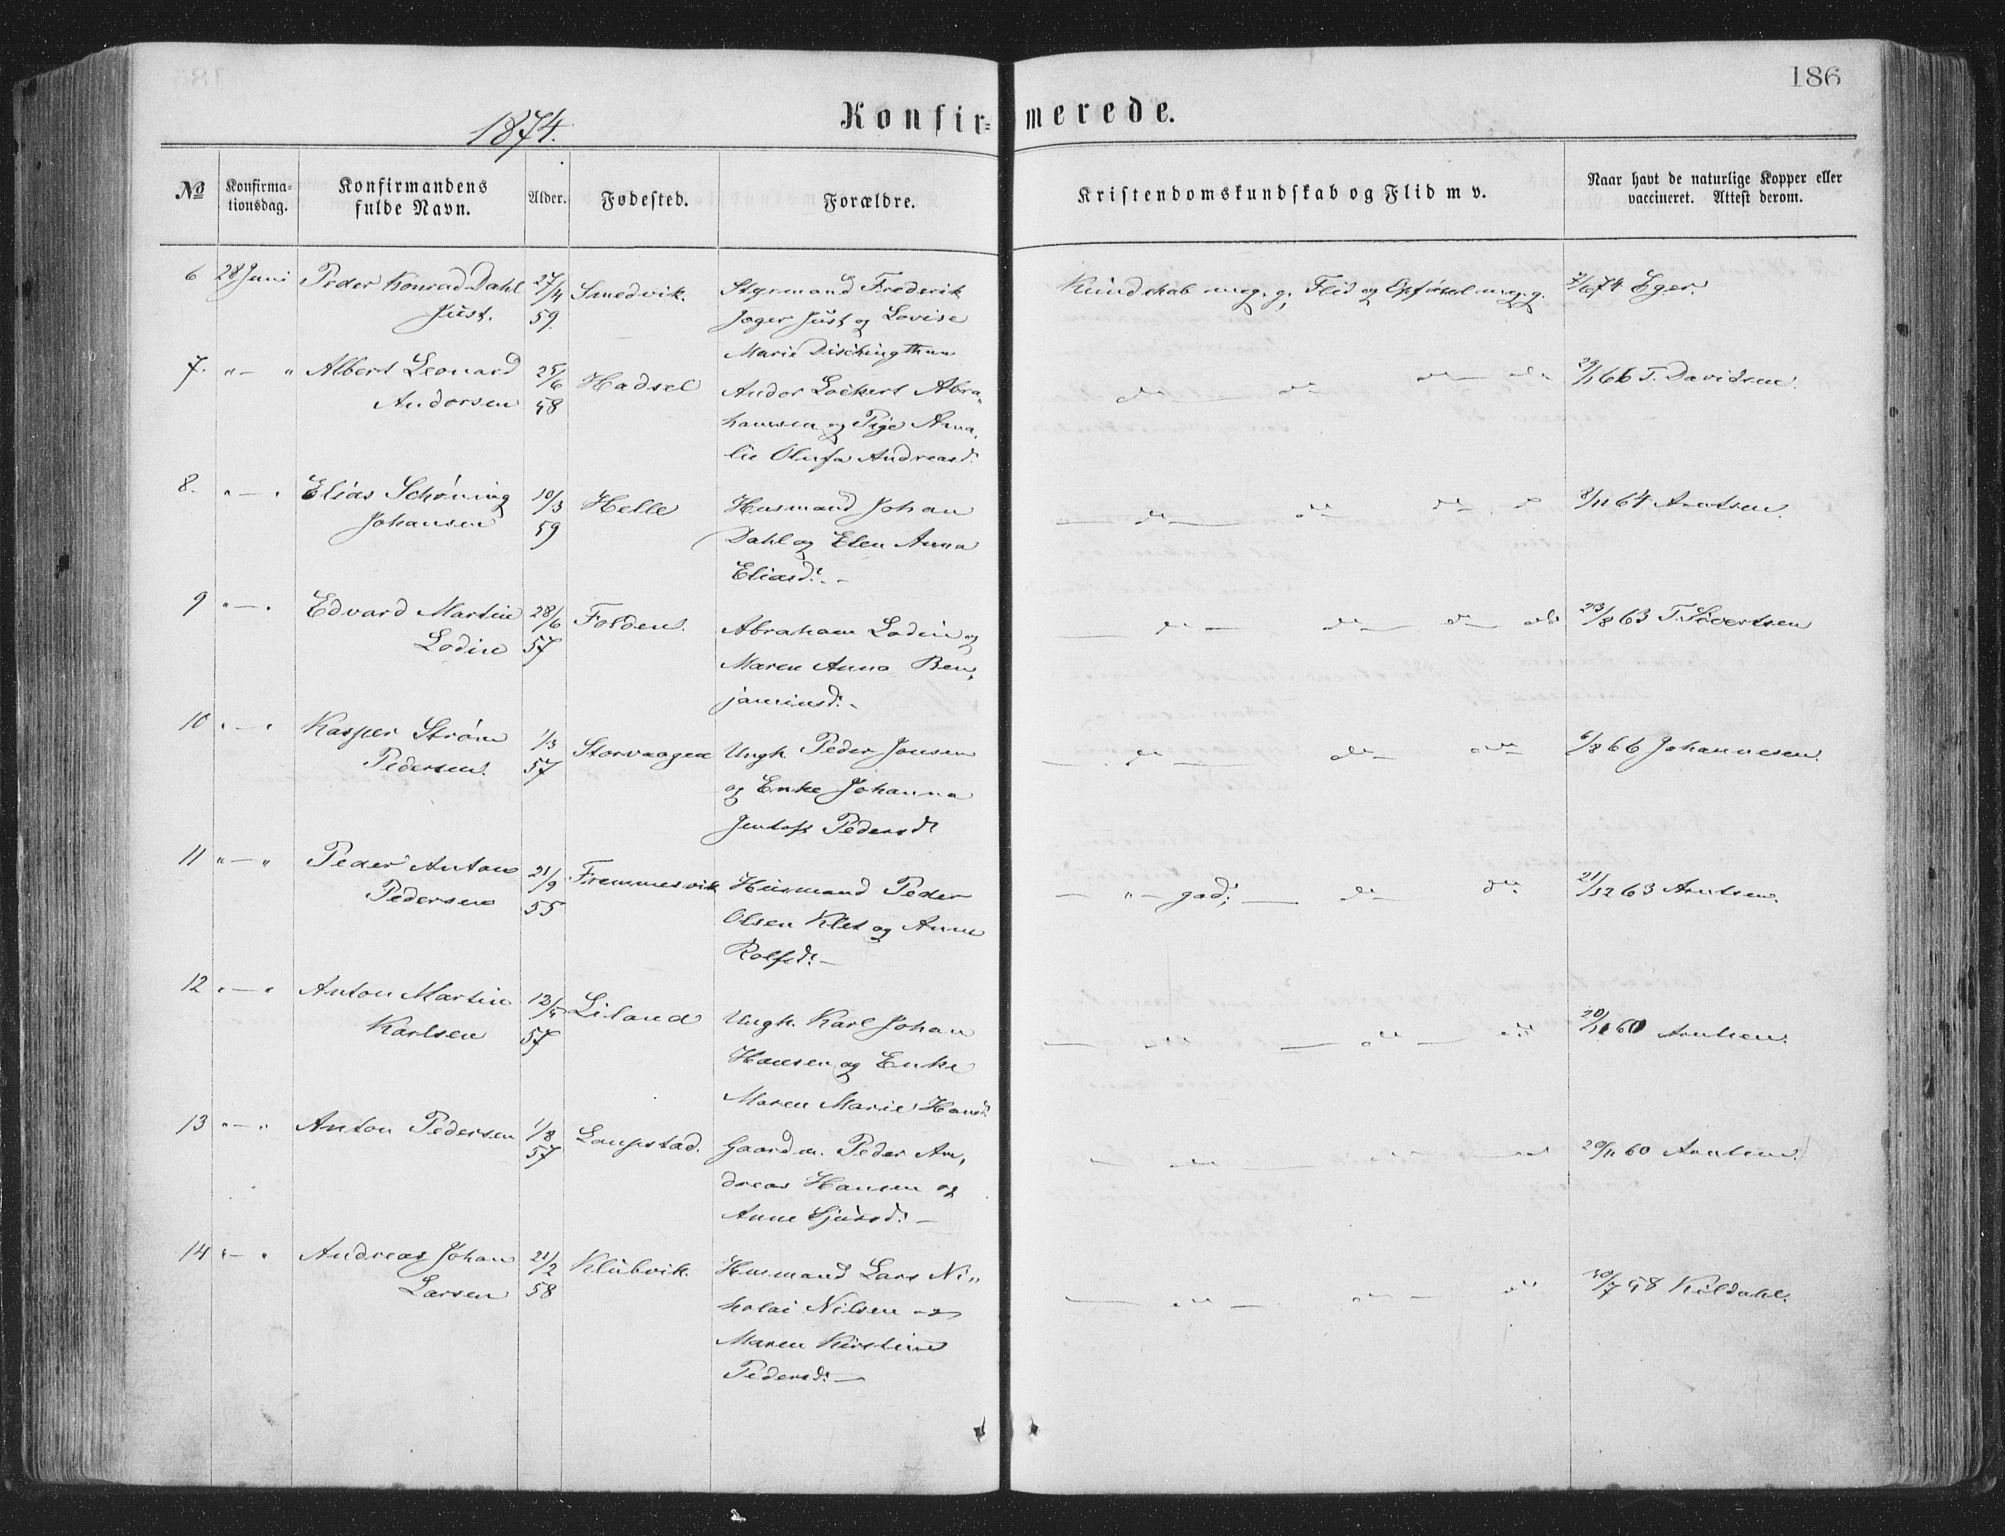 186
1874.
Konfir-merede.
№
Konfirma-
tionsdag.
Konfirmandens
fulde Navn.
Alder.
Fødested.
Forældre.
Kristendomskundskab og Flid m v.
Naar havt de naturlige Kopper eller
vaccineret. Attest derom.
6 28 Juni Peder Konrad Dahl 27/4 Smedvik. Styrmand Frederik Kundskab meg. g. Flid og Opførsel meg. g. 7/6 74 Eger.
Just. 59 Jæger Just og Lovise
Marie
7. " — " Albert Leonard 25/6 Hadsel Andor Lockert Abra- do do do do 29/1 66 T. Davidsen.
Andorsen 58 hamsen og Pige Ama-
lie Olufa Andreasd.
8. " — " Elias Schøning 10/3 Helle Husmand Johan do do do d 8/11 64 Arntsen.
Johansen 59 Dahl og Elen Anna
Eliasd. —
9 " — " Edvard Martin 28/6 Folden. Abraham Lodin og do do do do 23/8 63 T. Sivertsen
Lodin 57 Maren Anna Ben-
jaminsd. -
10 " — " Kasper Strøm 1/3 Storvaagen Ungk. Peder Jonsen do do do 6/8 66 Johannesen.
Pedersen. 57 og Enke Johanna
Jentoft Pedersd.
11 " — " Peder Anton 21/9 Fremmesvik Husmand Peder — " — god; — do do 21/12 63 Arntsen.
Pedersen 55 Olsen Klet og Anne
Rolfsd. —
12 " — " Anton Martin Liland Ungk. Karl Johan do do do 20/11 60 Arntsen.
Karlsen 57 Hansen og Enke
Maren Marie Hansd.
13 " — " Anton Pedersen 1/8 Laupstad. Gaardm. Peder An- do do do 20/11 60 Arntsen.
57 dreas Hansen og
Anne Sjursd. —
14 " — " Andreas Johan 21/2 Klubvik. Husmand Lars Ni- do do do 30/7 58 Kildahl.
Larsen 58 kolai Nilsen og
Maren Kirstine
Pedersd. —